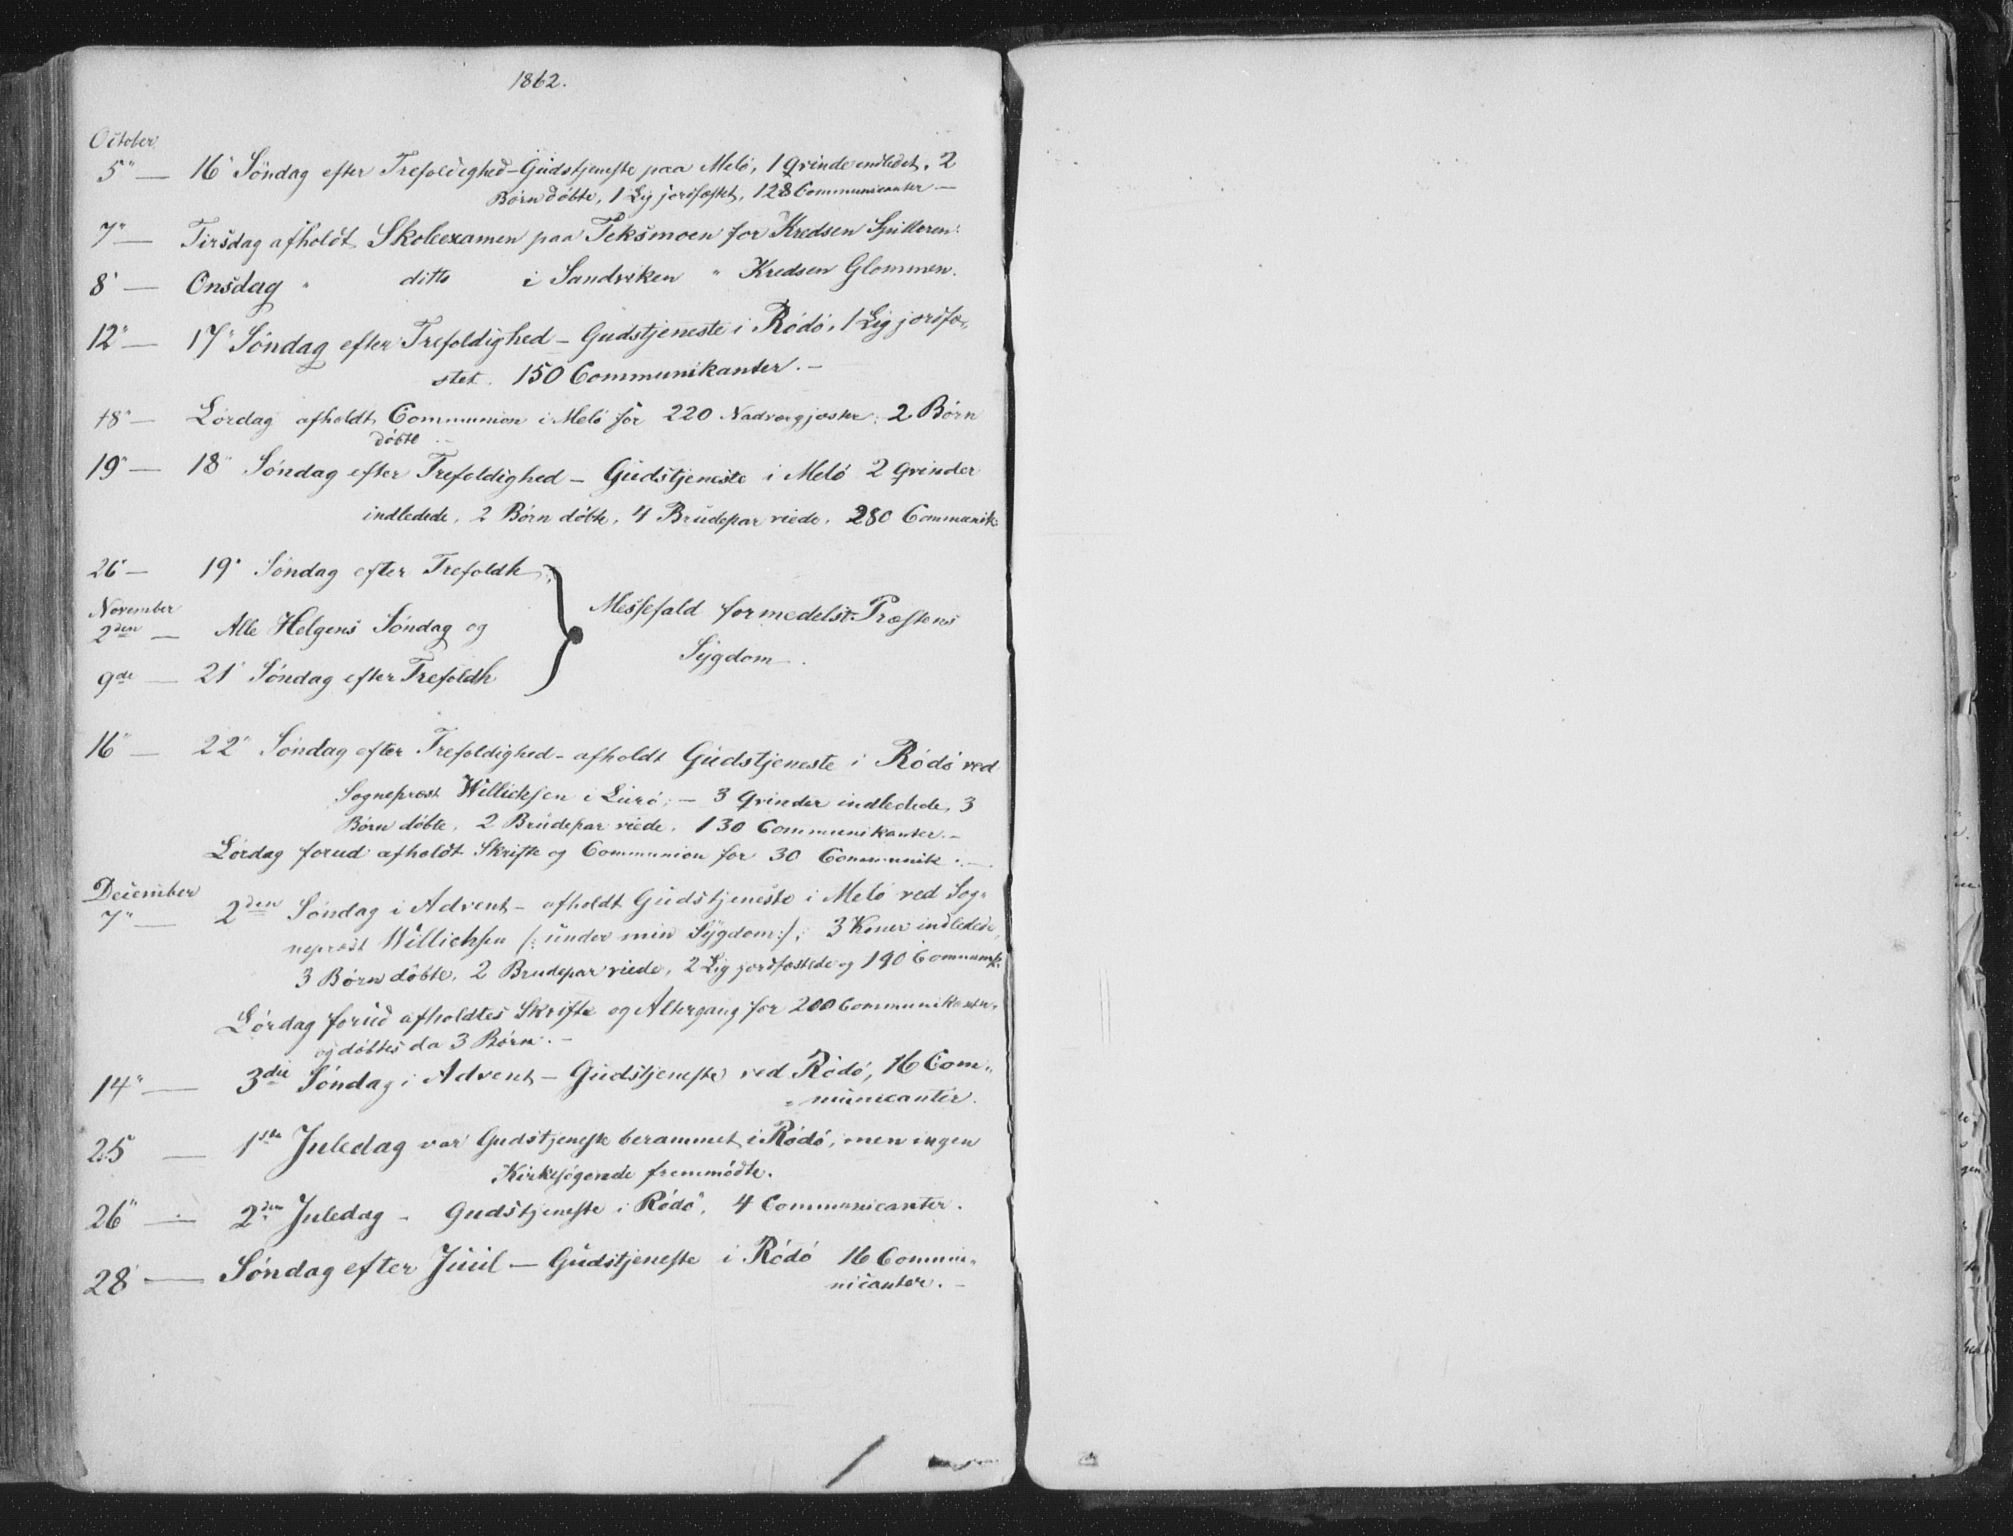 1862.
October
5" — 16' Söndag efter Trefoldighed - Gudstjeneste paa Melö, 1 Qvinde indledet, 2
Börn döbte, 1 Lig jordfæstet, 128 Communicanter —
7" — Tirsdag afholdt Skoleexamen paa Teksmoen for Kredsen Spilderen.
8' — Onsdag " ditto i Sandviken " Kredsen Glommen.
12" — 17' Söndag efter Trefoldighed - Gudstjeneste i Rödö, 1 Lig jordfæ-
stet. 150 Communikanter. —
18" — Lördag afholdt Communion i Melö for 220 Nadvergjæster: 2 Börn
döbte —
19" — 18" Söndag efter Trefoldighed - Gudstjeneste i Melö 2 Qvinder
indledede, 2 Börn döbte, 4 Brudepar viede, 280 Communik:
26" — 19" Söndag efter Trefoldh
November
2den — Alle Helgens Söndag og
9de — 21' Söndag efter Trefoldh
Messefald formedelst Præstens
Sygdom —.
16" — 22" Söndag efter Trefoldighed - afholdt Gudstjeneste i Rödö ved
Sognepræst Willichsen i Lurö; — 3 Qvinder indledede, 3
Börn döbte, 2 Brudepar viede, 130 Communikanter. —
Lördag forud afholdt Skrifte og Communion for 30 Communik. —
December
7" — 2den Söndag i Advent - afholdt Gudstjeneste i Melö ved Sog-
nepræst Willichsen /: under min Sygdom:/; 3 Koner indledede,
3 Börn döbte, 2 Brudepar viede, 2 Lig jordfæstede og 190 Communik:
Lördag forud afholdtes Skrifte og Altergang for 200 Communikanter
og döbtes da 3 Börn. —
14" — 3die Söndag i Advent - Gudstjeneste ved Rödö, 16 Com-
municanter.
25 — 1ste Juledag var Gudstjeneste berammet i Rödö, men ingen
Kirkesögende fremmödte.
26" — 2den Juledag - Gudstjeneste i Rödö, 4 Communicanter.
28' — Söndag efter Juul - Gudstjeneste i Rödö 16 Commu-
nicanter. —